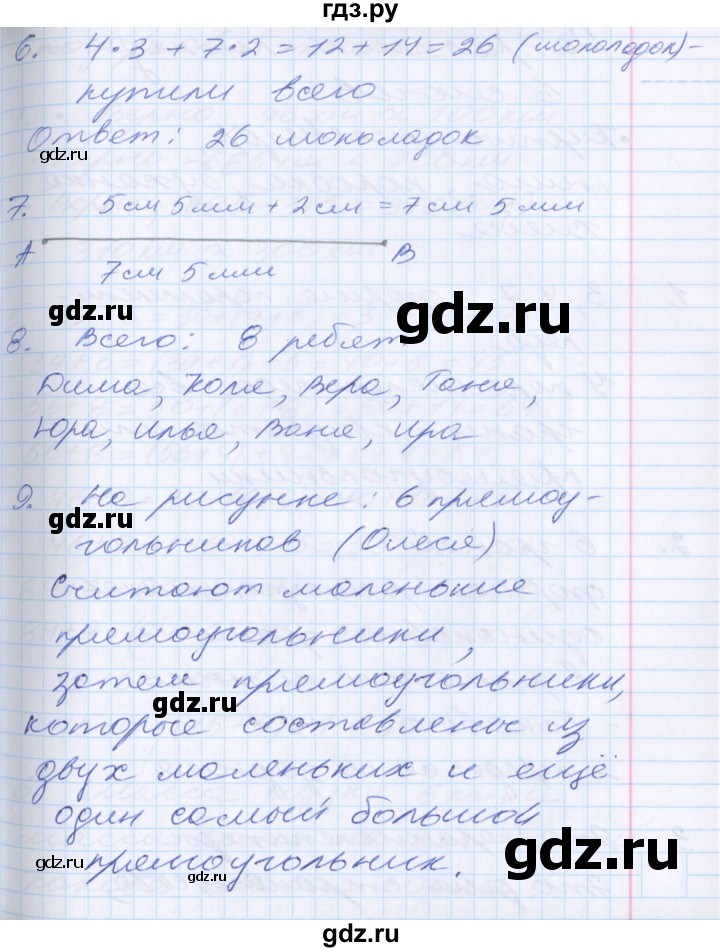 гдз.ру
6. 4·3 + 7·2 = 12 + 14 = 26 (шоколадок) -
купили всего
Ответ: 26 шоколадок
gdz.ru
7. 5см 5мм + 2см = 7см 5мм
gdz.ru
A B
7см 5мм
gdz.ru
gdz.ru
8. Всего: 8 ребят
Дима, Коля, Вера, Таня,
Юра, Илья, Ваня, Ира
gdz.ru
9. На рисунке: 6 прямоу-
гольников (Олеся)
Считают маленькие
прямоугольники,
затем прямоугольники,
gdz.ru
которые составлены из
двух маленьких и ещё
один самый большой
gdz.ru
gdz.ru
прямоугольник.
gdz.ru